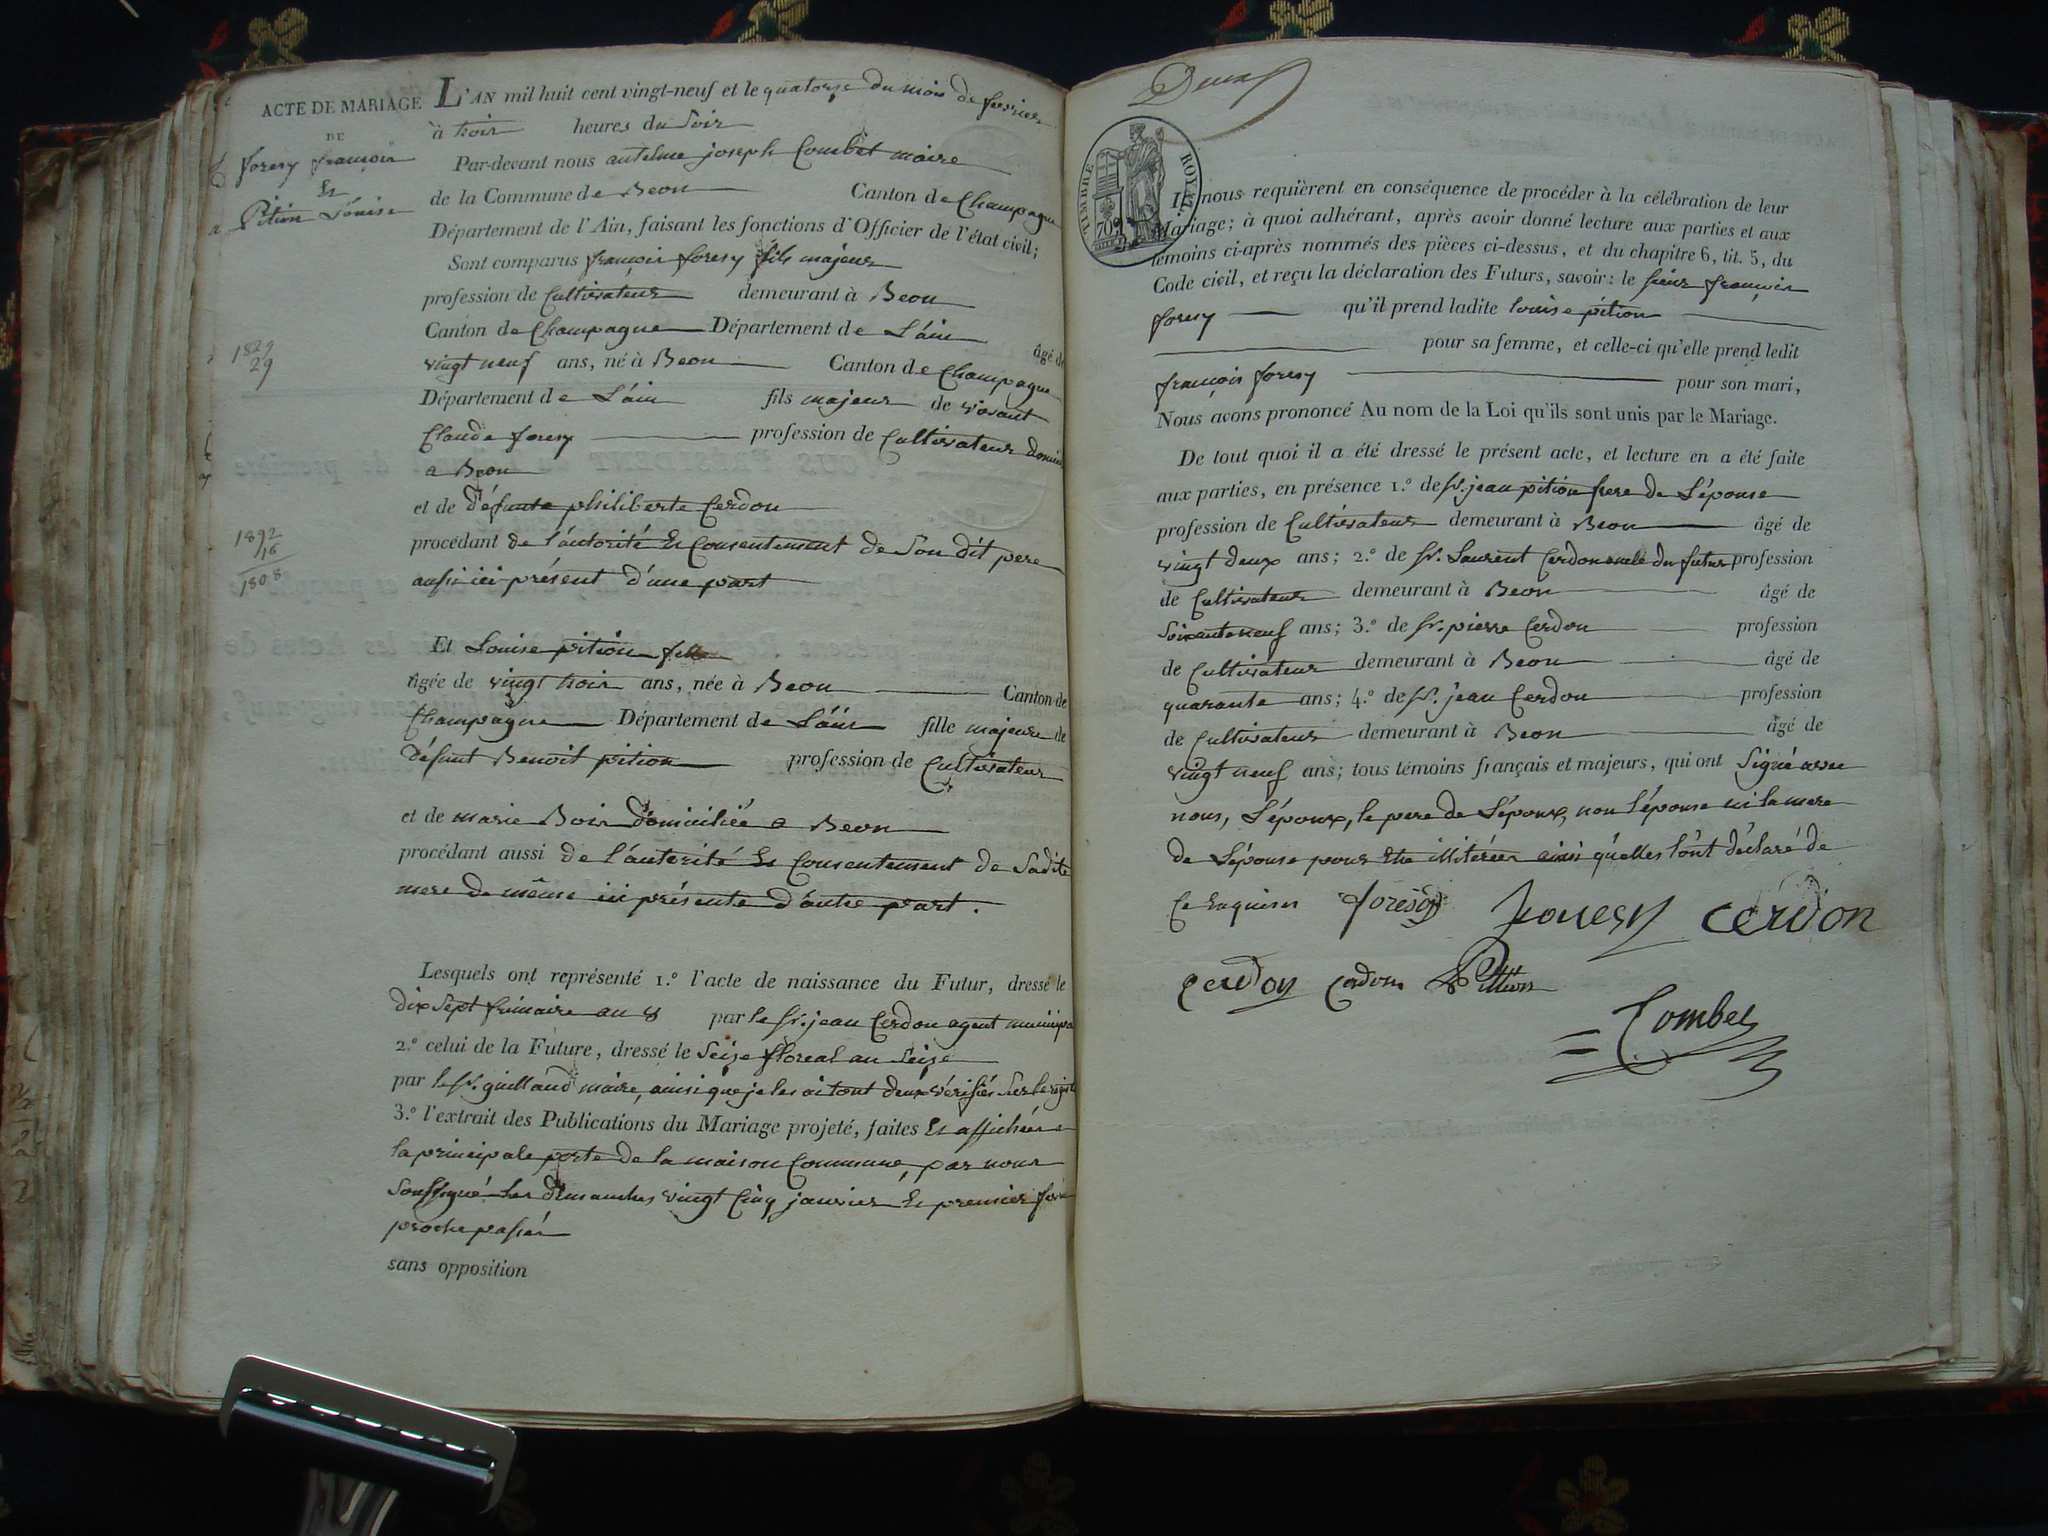 ACTE DE MARIAGE
DE
foresy françois
Et
Pition Louise
1829
29
1892
16
1808
L'AN mil huit cent vingt-neuf et le quatorze du mois de fevrier
à trois heures du soir
Par-devant nous antelme joseph Combet maire
de la Commune de Beon Canton de Champagne
Département de l'Ain, faisant les fonctions d'Officier de l'état civil;
Sont comparus françois foresy fils majeur
profession de Cultivateur demeurant à Beon
Canton de Champagne Département de L'ain âgé de
vingt neuf ans, né à Beon Canton de Champagne
Département de L'ain fils majeur de vivant
Claude foresy profession de Cultivateur
a Beon
et de défunte philiberte Cerdon
procédant de l'autorité Et Consentement de Son dit pere
aussi ici présent d'une part
Et Louise pition fille
âgée de vingt trois ans, née à Beon Canton de
Champagne Département de L'ain fille majeure de
défunt Benoit pition profession de Cultivateur
et de marie Bois domiciliée a Beon
procédant aussi de l'autorité Et Consentement de Sadite
mere de même ici présente d'autre part.
Lesquels ont représenté 1.º l'acte de naissance du Futur, dressé le
dix Sept frimaire an 8 par le Sr. jean Cerdon agent municipa
2.º celui de la Future, dressé le Seize floreal an Seize
par le Sr. guilland maire, ainsi que je les ai tout deux vérifiés Sur le
3.º l'extrait des Publications du Mariage projeté, faites Et affichées a
la principale porte de la maison Commune, par nous
Soussigné Les dimanches vingt Cinq janvier Et premier
proche passés
sans opposition
TIMBRE ROYAL
70
Ils nous requièrent en conséquence de procéder à la célébration de leur
Mariage; à quoi adhérant, après avoir donné lecture aux parties et aux
témoins ci-après nommés des pièces ci-dessus, et du chapitre 6, tit. 5, du
Code civil, et reçu la déclaration des Futurs, savoir: le sieur françois
foresy qu'il prend ladite louise pition
pour sa femme, et celle-ci qu'elle prend ledit
françois foresy pour son mari,
Nous avons prononcé Au nom de la Loi qu'ils sont unis par le Mariage.
De tout quoi il a été dressé le présent acte, et lecture en a été faite
aux parties, en présence 1.º de Sr. jean pition frere de L'épouse
profession de Cultivateur demeurant à Beon âgé de
vingt deux ans; 2.º de Sr. Laurent Cerdon oncle du futur profession
de Cultivateur demeurant à Beon âgé de
Soixante neuf ans; 3.º de Sr. pierre Cerdon profession
de Cultivateur demeurant à Beon âgé de
quarante ans; 4.º de Sr. jean Cerdon profession
de Cultivateur demeurant à Beon âgé de
vingt neuf ans; tous témoins français et majeurs, qui ont Signé avec
nous, L'époux, le pere de L'époux, non l'épouse ni la mere
de L'épouse pour Etre illitérées ainsi qu'elles l'ont déclaré de
Ce Enquises foresy foresy Cerdon
Cerdon Cerdon Pition
Combet